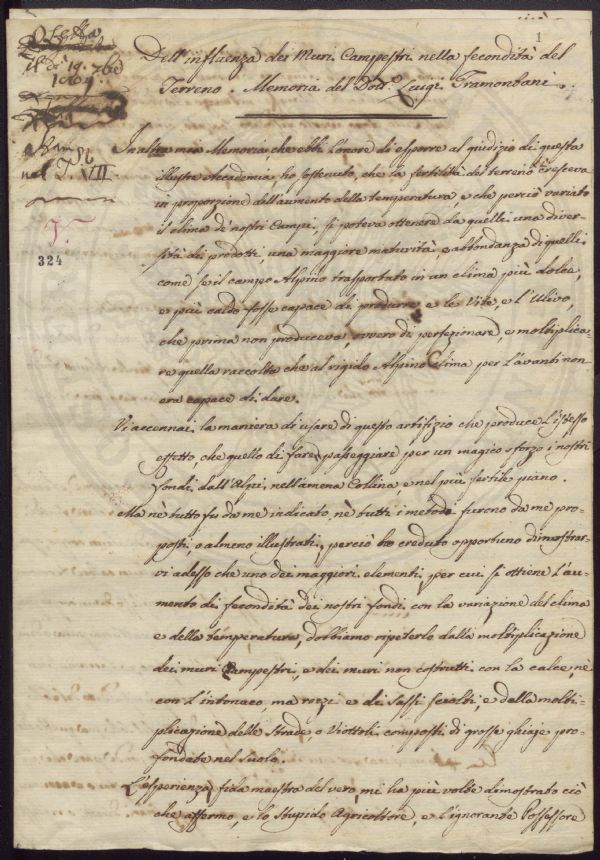 1
Letta
il dì 19. 7bre
1804.
nel T. VII
324
Dell'influenza dei Muri Campestri nella fecondità del
Terreno. Memoria del Dott.e Luigi Tramontani.
In altra mia Memoria, che ebbi l'onore di esporre al giudizio di questa
illustre Accademia, ho sostenuto, che la fertilità del terreno cresceva
in proporzione dell'aumento della temperatura, e che perciò variato
il clima de' nostri Campi, si poteva ottenere da quelli una diver-
sità di prodotti una maggiore maturità e abbondanza di quelli
come se il campo Alpino trasportato in un clima più dolce,
e più caldo fosse capace di produrre e le Vite, e l'Ulivo,
che prima non produceva, ovvero di perfezionare, e moltiplica-
re quella raccolta che al rigido Alpino Clima per l'avanti non
era capace di dare.
Vi accennai la maniera di usare di questo artifizio che produce l'istesso
effetto, che quello di fare passeggiare per un magico sforzo i nostri
fondi dall'Alpi, nell'amena Collina, e nel più fertile piano.
Ma nè tutto fu da me indicato, nè tutti i metodi furono da me pro-
posti, o almeno illustrati, perciò ho creduto opportuno dimostrar-
vi adesso che uno dei maggiori elementi, per cui si ottiene l'au-
mento di fecondità dei nostri fondi con la variazione del clima
e della temperatura, dobbiamo ripeterlo dalla moltiplicazione
dei muri Campestri, e dei muri non costrutti con la calce, nè
con l'intonaco, ma rozzi e di sassi sciolti e dalla molti-
plicazione delle Strade, o Viottoli composti di grosse ghiaje pro-
fondate nel suolo.
L'esperienza, fida maestra del vero, mi ha più volte dimostrato ciò
che affermo, e lo stupido Agricoltore, e l'ignorante Possessore